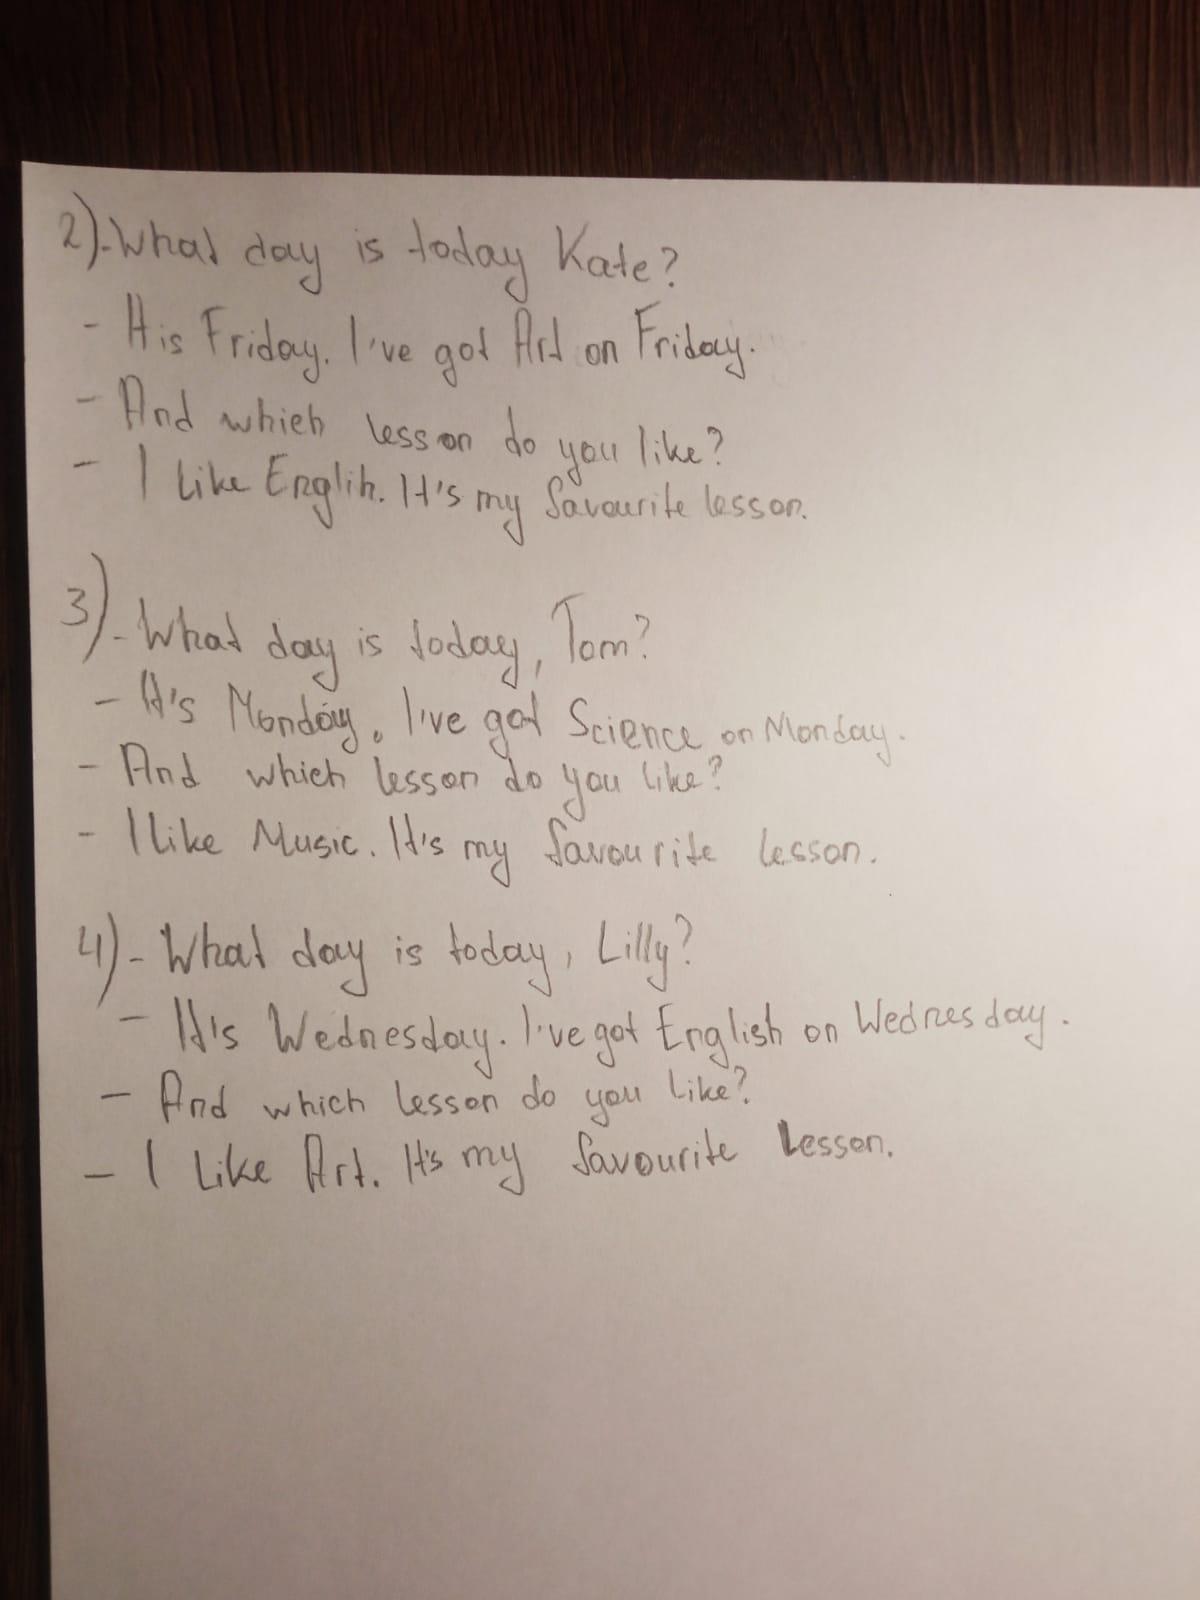 2).-What day is today Kate?
- It is Friday. I've got Art on Friday.
- And which lesson do you like?
- I like Englih. It's my favourite lesson.
3).-What day is today, Tom?
- It's Monday. I've got Science on Monday.
- And which lesson do you like?
- I like Music. It's my favourite lesson.
4)-What day is today, Lilly?
- It's Wednesday. I've got English on Wednesday.
- And which lesson do you like?
- I like Art. It's my favourite lesson.